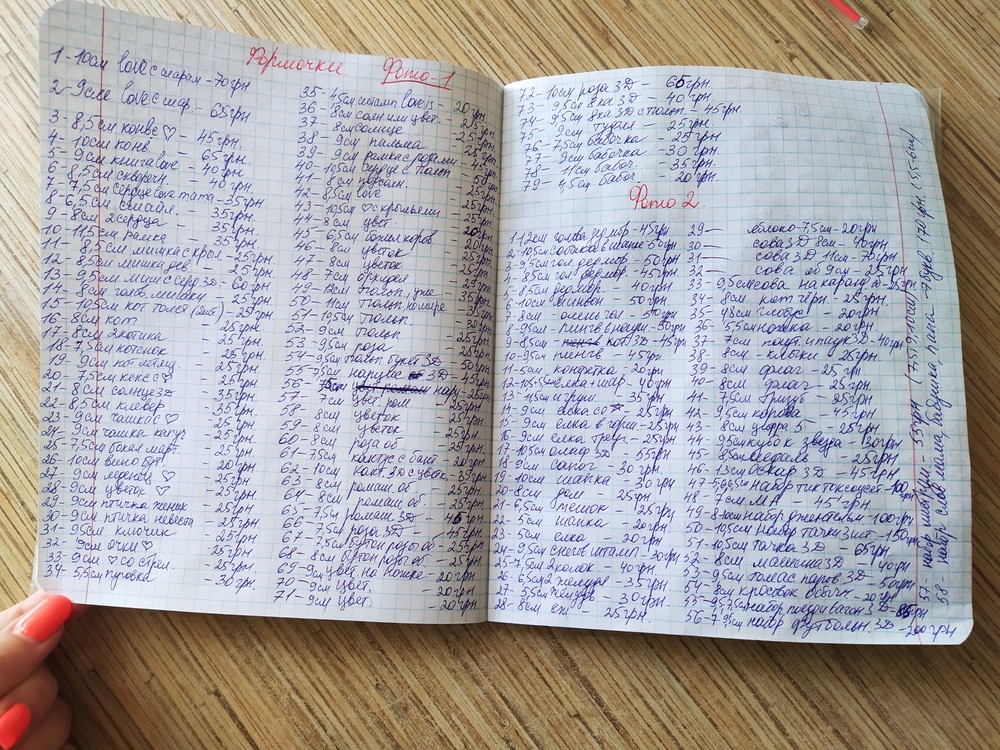 Формочки Фото-1
1-10см love с шарам -70грн
2-9см love с шар - 65грн
3-8,5см конве ♡ - 45грн.
4-10см конв. - 65грн.
5-9см книга love - 40грн
6-8,5см сковороч - 40грн.
7-7,5см сердце love тата -35грн
8-6,5см - 35грн.
9-8см 2 сердца - 35грн
10-11,5см рамка - 35грн
11-8,5см мишка с крол -25грн
12-8,5см мишка дев - 25грн.
13-9,5см миш с серд 3D - 60грн
14-8см голов. мишки - 25грн
15-10,5см кот толст - 25грн
16-8см кот - 25грн.
17-8см 2 котика - 25грн.
18-7,5см котенок - 25грн
19-9см кот - 25грн.
20-7,5см кекс ♡ - 25грн.
21-8см солнце 3D - 35грн.
22-8,5см клевер - 35грн
23-9см чашка ♡ - 25грн.
24-9см чашка - 25грн.
25-7,5см бокал март. - 25грн.
26-10см вино бут. - 20грн
27-9см леденец ♡ - 25грн.
28-9см цветок ♡ - 25грн.
29-9см птичка жених - 25грн
30-9см птичка невеста - 25грн
31-9,5см ключик - 25грн
32-9см очки ♡ - 25грн
33-9см ♡ со стрел. - 25грн.
34-5,5см пуговка - 30грн.
35-4,5см штамп love is - 20грн.
36-8см солн или цвет. - 25грн.
37-8см солнце - 25грн.
38-8см пальма - 25грн.
39-9см рамка с розами - 45грн
40-10,5см сердце с тюльп - 50грн
41-8см - 25грн.
42-8,5см love - 25грн.
43-10,5см ♡ с крыльями - 25грн
44-8см цвет - 20грн
45-6,5см божья коров - 20грн
46-8см цветок - 25грн
47-8см цветок - 25грн.
48-7см - 25грн
49-12см тюльп - 35грн
50-11см тюльп - 35грн
51-10,5см тюльп. - 30грн
52-9см тюльп - 25грн.
53-9,5см роза - 25грн.
54-9,5см тюльп букет 3D - 50грн
55-7,5см 3D - 45грн
56- - 25грн
57-7см цвет. ром. - 25грн
58-8см цветок - 25грн.
59-8см цветок - 25грн.
60-8см роза об - 25грн.
61-7,5см кактус с бант - 20грн
62-10см какт 3D с цветк -30грн.
63-8см ромаш. об - 25грн.
64-8см ромашк об - 25грн.
65-7,5см ромашк 3D - 45грн
66-7,5см роза 3D - 45грн.
67-7,5см бутон розы об - 25грн.
68-8см бутон розы об. - 25грн.
69-9см цвет на ножке - 20грн.
70-9см цвет. - 20грн.
71-9см цвет. - 20грн
72-10см роза 3D - 65грн.
73-9,5см 8ка 3D - 40грн
74-9,5см 8ка 3D с тюльп. -45грн
75-9см туфля - 25грн.
76-7,5см бабочка - 25грн
77-9см бабочка - 30грн
78-11см бабоч - 35грн.
79-4,5см бабоч - 20грн.
Фото 2.
1-12см голова -45грн
2-10,5см собака в шапке -50грн
3-9,5см гол дедмор. - 50грн
4-9,5см гол дедмор. - 45грн.
5-8,5см дедмор. - 40грн
6-10см - 50грн
7-8см олень гол - 50грн
8-9,5см пингв в наушн -30грн
9-8,5см кот 3D -45грн
10-9,5см пингв - 45грн
11-5см конфетка - 20грн
12-10,5см елка и шар - 40грн
13-11,5см игруш - 35грн
14-9см елка со ☆ - 25грн
15-9см елка в горш -25грн
16-9см елка треуг. -25грн
17-10,5см олаф 3D - 55грн
18-9см сапог - 30грн.
19-10см шапка - 30грн
20-8см дом - 25грн
21-6,5см мешок - 25грн
22-5см шапка - 20грн
23-5см елка - 20грн
24-9,5см снегов штамп -30грн
25-7,5см 2 колок - 40грн
26-6,5см 2 желудя - 35грн
27-5,5см желудь - 30грн.
28-8см еж 25грн.
29- яблоко-7,5см-20грн
30- сова 3D 8см -40грн
31- сова 3D 11см -70грн
32- сова об 9см -25грн
33-9,5см сова на каранд -25грн
34-8см кот черн - 25грн.
35-4,8см глобус - 20грн
36-5,5см ножка - 20грн.
37-7см паут и паук 3D -40грн
38-8см - клыки - 25грн.
39-8см - флаг - 25грн
40-8см флаг - 25грн
41-7,5см тризуб - 25грн
42-9,5см корова - 45грн
43-8см цифра 5 - 25грн
44-9,5см кубок звезда -30грн
45-8,5см медаль - 25грн.
46-13см Оскар 3D - 45грн
47-5,6,5см набор тикток соцсет -100грн
48-7см М.Р. - 45грн.
49-8-10см набор джентельм -100грн
50-10,5см набор тачки 3шт -150грн
51-10,5см тачка 3D - 65грн
52-8см машина 3D - 40грн
53-9,5см томас паров 3D - 50грн
54-8см кросовок об - 20грн
55-9,5,7,5см набор поезд и вагон 3D -85грн
56-7,9,5см набор футбольн. 3D -200грн
57- набор - 55грн (7,5,9,10см)
58 - набор слов мама, бабушка, папа - 7букв 170грн. (5,5-6см)